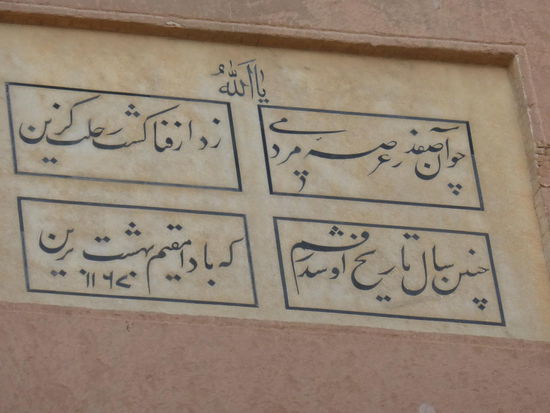 یا الله
چو آن صفدر عرصه مردمی
ز دار فنا گشت رحلت گزین
چنین سال تاریخ او شد رقم
که بادا مقیم بهشت برین
۱۱۶۷